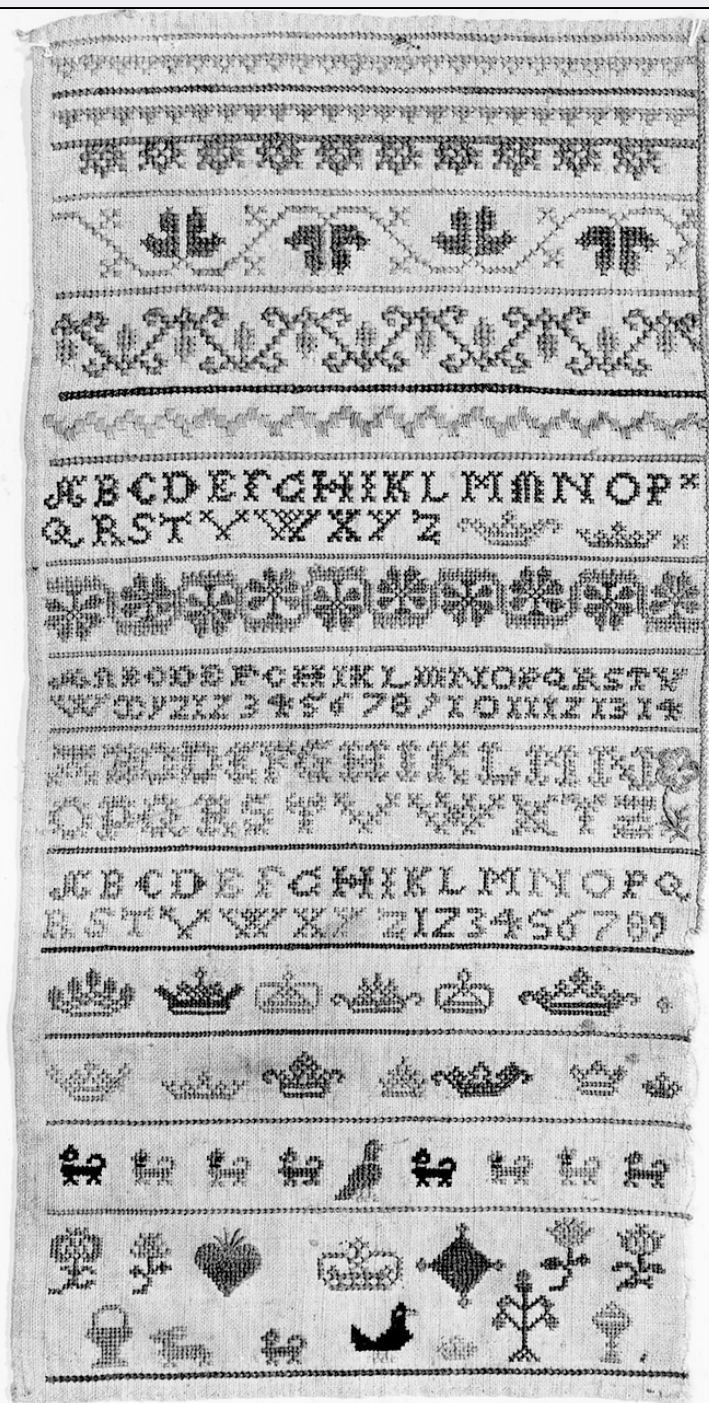 ABCDEFGHIKLMMNOP
QRSTVWXYZ
ABCDEFGHIKLMNOPQRSTV
WXYZ1234567891011121314
ABCDEFGHIKLMN
OPQRSTVWXYZ
ABCDEFGHIKLMNOPQ
RSTVWXYZ123456789